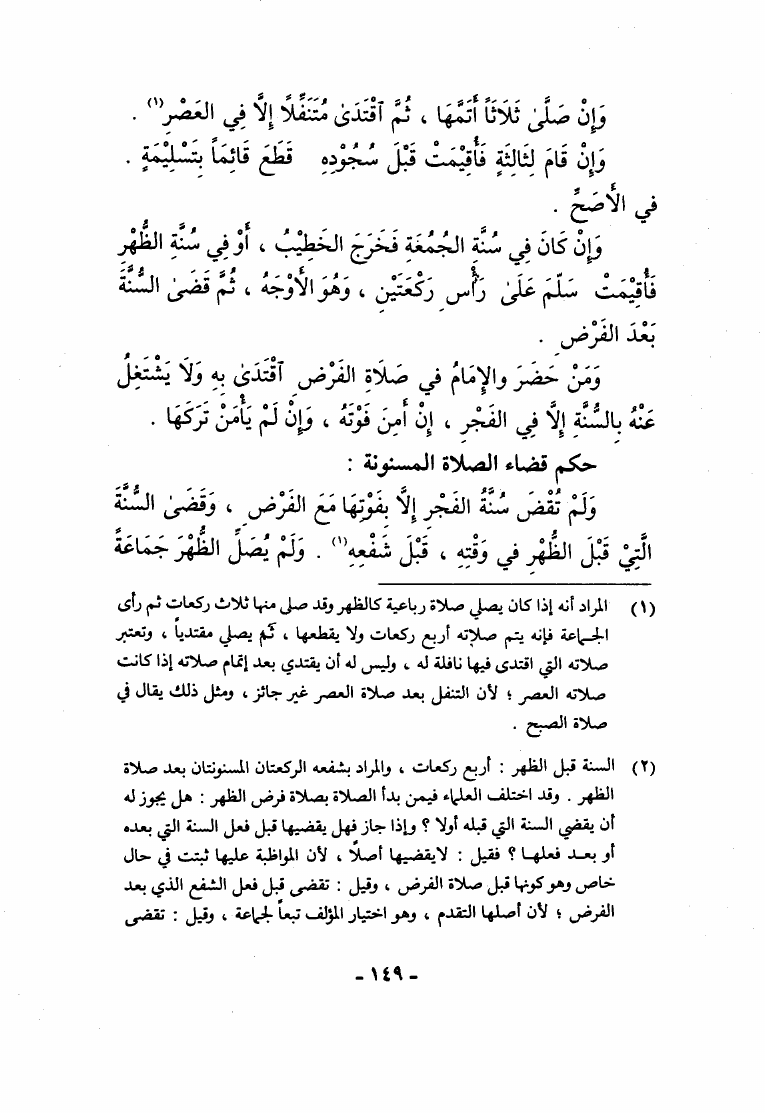 وَإِنْ صَلَّىٰ ثَلَاثَاً أَتَمَّهَا ، ثُمَّ آقْتَدَىٰ مُتَنَفِّلًا إِلاَّ فِي العَصْرِ(١) .
وَإِنْ قَامَ لِثَالِثَةٍ فَأُقِيْمَتْ قَبْلَ سُجُوْدِهِ قَطَعَ قَائِمَاً بِتَسْلِيْمَةٍ .
في الأَصَحِّ .
وَإِنْ كَانَ فِي سُنَّةِ الجُمُعَةِ فَخَرَجَ الخَطِيْبُ ، أَوْ فِي سُنَّةِ الظُّهْرِ
فَأُقِيْمَتْ سَلَّمَ عَلَىٰ رَأْسِ رَكْعَتَيْنِ ، وَهُوَ الأَوْجَهُ ، ثُمَّ قَضَىٰ السُّنَّةَ
بَعْدَ الفَرْضِ .
وَمَنْ حَضَرَ والإِمَامُ في صَلَاةِ الفَرْضِ آقْتَدَىٰ بِهِ وَلَا يَشْتَغِلُ
عَنْهُ بِالسُّنَّةِ إِلاَّ فِي الفَجْرِ ، إِنْ أَمِنَ فَوْتَهُ ، وَإِنْ لَمْ يَأْمَنْ تَرَكَهَا .
حكم قضاء الصلاة المسنونة :
وَلَمْ تُقْضَ سُنَّةُ الفَجْرِ إِلاَّ بِفَوْتِهَا مَعَ الفَرْضِ ، وَقَضَىٰ السُّنَّةَ
الَّتِيْ قَبْلَ الظُّهْرِ في وَقْتِهِ ، قَبْلَ شَفْعِهِ(١) . وَلَمْ يُصَلِّ الظُّهْرَ جَمَاعَةً
(١) المراد أنه إذا كان يصلي صلاة رباعية كالظهر وقد صلى منها ثلاث ركعات ثم رأى
الجماعة فإنه يتم صلاته أربع ركعات ولا يقطعها ، ثم يصلي مقتدياً ، وتعتبر
صلاته التي اقتدى فيها نافلة له ، وليس له أن يقتدي بعد إتمام صلاته إذا كانت
صلاته العصر ؛ لأن التنفل بعد صلاة العصر غير جائز ، ومثل ذلك يقال في
صلاة الصبح .
(٢) السنة قبل الظهر : أربع ركعات ، والمراد بشفعه الركعتان المسنونتان بعد صلاة
الظهر . وقد اختلف العلماء فيمن بدأ الصلاة بصلاة فرض الظهر : هل يجوز له
أن يقضي السنة التي قبله أولا ؟ وإذا جاز فهل يقضيها قبل فعل السنة التي بعده
أو بعد فعلها ؟ فقيل : لايقضيها أصلاً ، لأن المواظبة عليها ثبتت في حال
خاص وهو كونها قبل صلاة الفرض ، وقيل : تقضى قبل فعل الشفع الذي بعد
الفرض ؛ لأن أصلها التقدم ، وهو اختيار المؤلف تبعاً لجماعة ، وقيل : تقضى
- ١٤٩ -